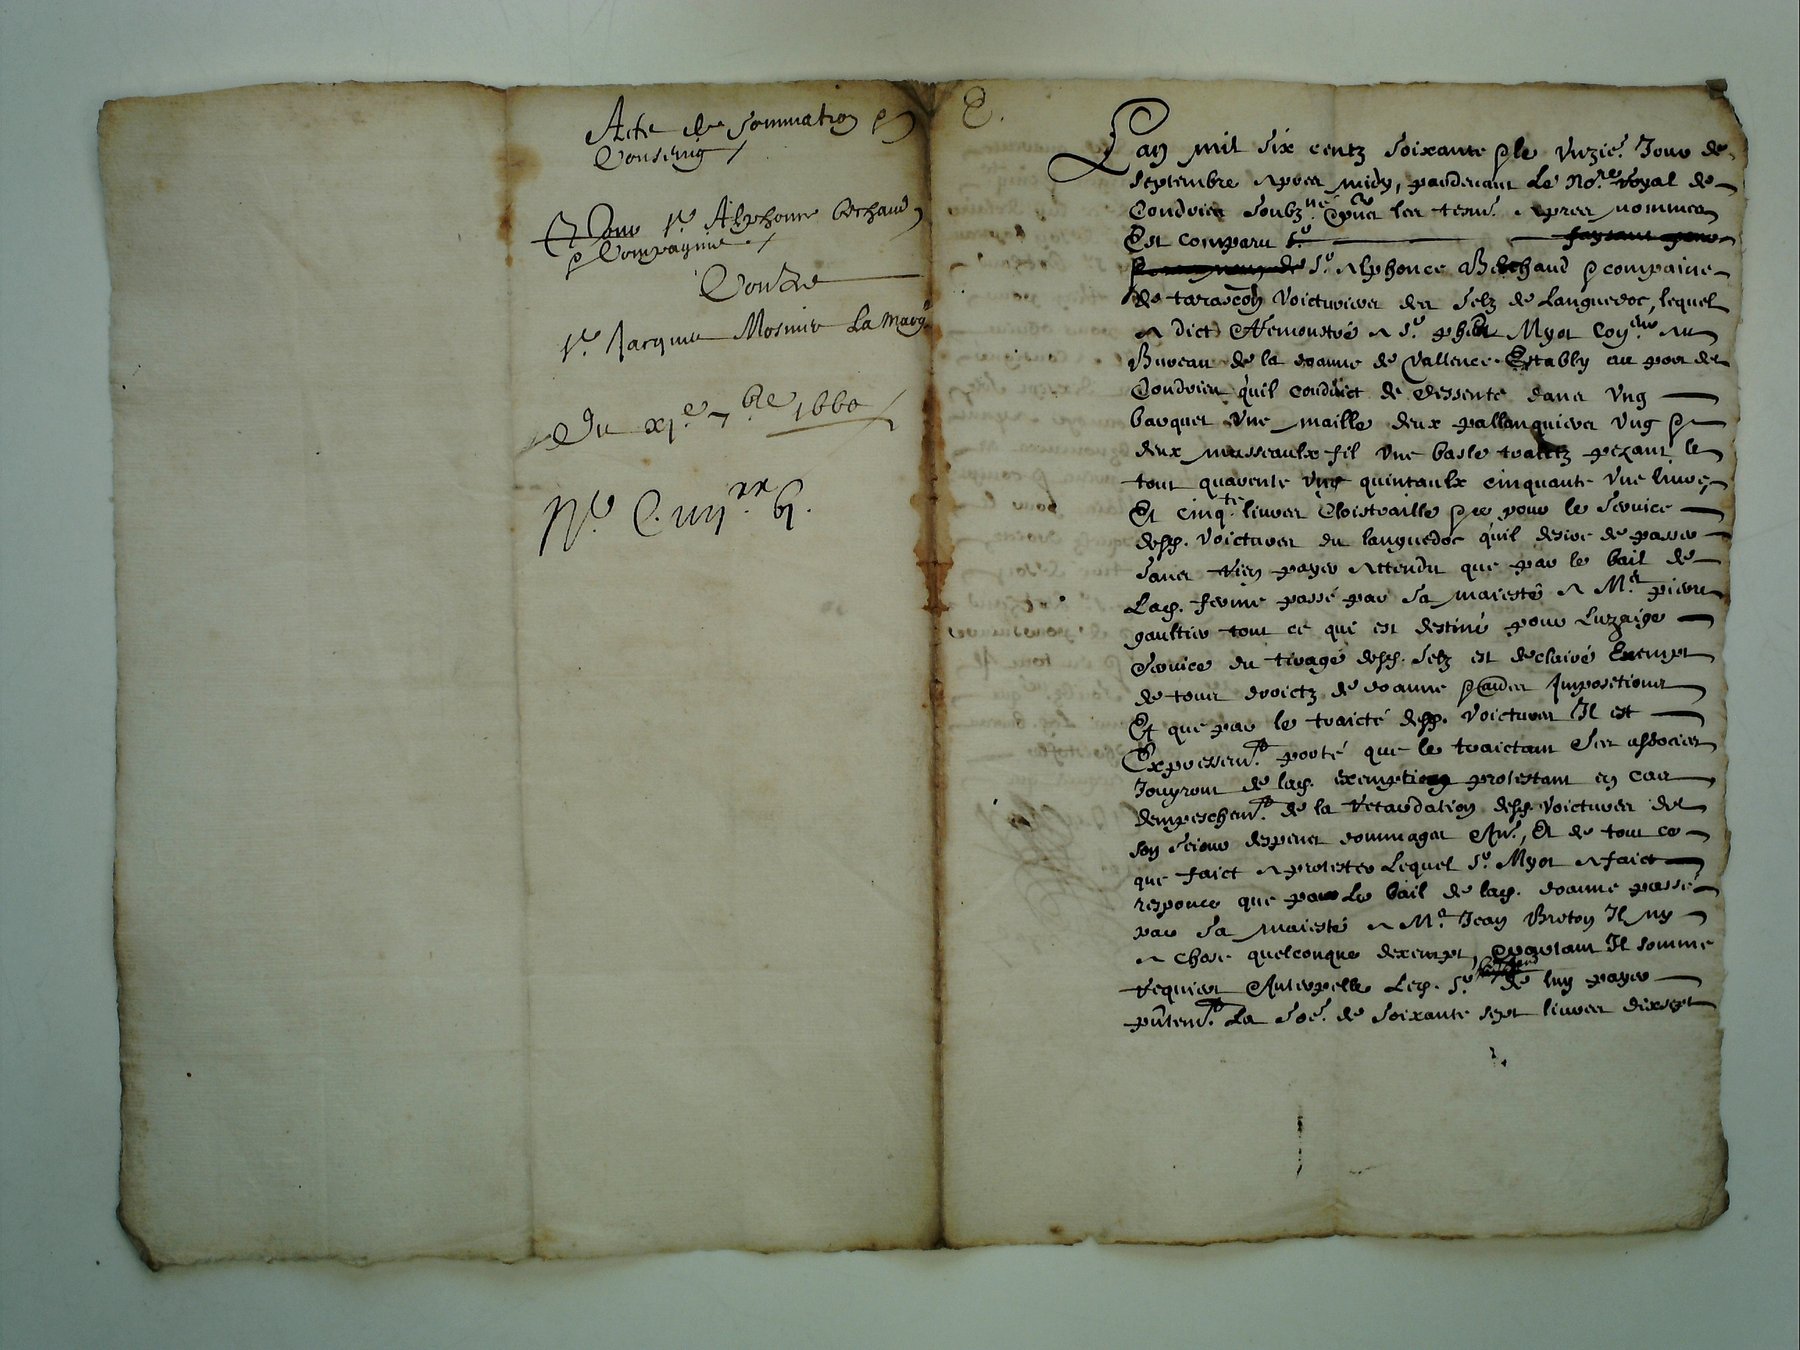 Acte de sommation &
Consering /
Pour Sr. Alphonce Bechaud
& Compagnie /
Contre
Sr. Jacques Mosnier La Marq
Du xje 7bre 1660
No. C. iiijxx
Lan mil six centz soixante & le unzie. Jour de
septembre apres midy, pardevant Le No.re Royal de
Condrieu soubz.né & pnts les tesm. apres nommes
Est comparu Sr. faysant pour
Sr. Alphonce Bechaud & compaine
de tarascon voicturier des selz de Languedoc, lequel
a dict & remonstré a Sr. Myot au
Bureau de la doanne de Vallence Estably au port de
Condrieu quil conduict de dessente dans ung
barquet une maille deux pallanquieres ung &
deux masseaulx fil une basle pezant le
tout quarente ung quintaulx cinquante une livre,
Et cinq.te livres Cloistraille & ce pour le service
desd. voictures du languedoc quil desire de passer
sans rien payer attendu que par le bail de
Lad. ferme passé par sa maiesté a Me. pierre
gaultier tout ce qui est destiné pour Luzaige
service du tirage desd. selz est declairé Exempt
de tous droictz de doanne & aultres Impositions
Et que par le traicté desd. voictures Il est
Expressem.t porté que le traictant Ses associes
Jouyront de lad. exemption protestant en cas
dempeschem.t de la retardation desd. voictures de
son seiour despens dommages Int., Et de tout ce
que faict a protester Lequel Sr. Myot a faict
responce que par Le bail de lad. doanne passé
par sa maiesté a Me. Jean Breton Il ny
a chose quelconque dexempt, & partant Il somme
Requiert & Interpelle Led. Sr. de luy payer
pntem.t La so.e de soixante sept livres dixsept